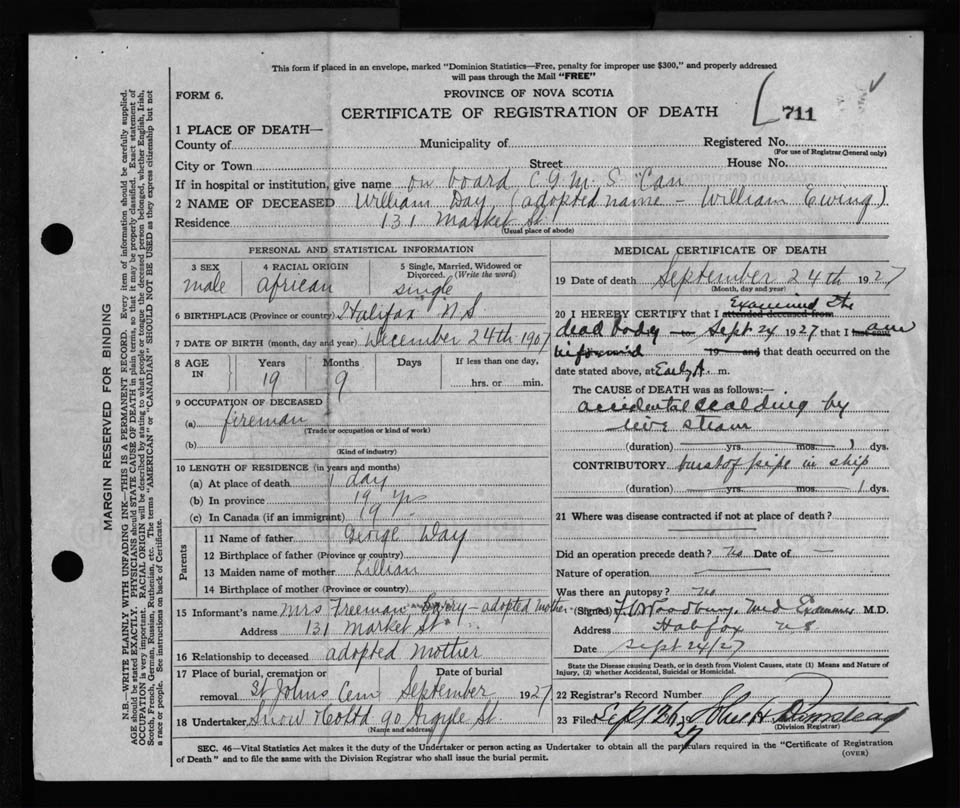 This form if placed in an envelope, marked "Dominion Statistics—Free, penalty for improper use $300," and properly addressed
will pass through the Mail "FREE"
FORM 6.
PROVINCE OF NOVA SCOTIA
CERTIFICATE OF REGISTRATION OF DEATH
711
1 PLACE OF DEATH—
County of Municipality of Registered No.
(For use of Registrar General only)
City or Town Street House No.
If in hospital or institution, give name on board C G M S "Can
2 NAME OF DECEASED William Day (adopted name - William Ewing)
Residence 131 Market St
(Usual place of abode)
PERSONAL AND STATISTICAL INFORMATION
3 SEX 4 RACIAL ORIGIN 5 Single, Married, Widowed or
Divorced. (Write the word)
male african single
6 BIRTHPLACE (Province or country) Halifax N.S.
7 DATE OF BIRTH (month, day and year) December 24th 1907
8 AGE Years Months Days If less than one day,
IN 19 9 hrs. or min.
9 OCCUPATION OF DECEASED
(a) fireman
(Trade or occupation or kind of work)
(b)
(Kind of industry)
10 LENGTH OF RESIDENCE (in years and months)
(a) At place of death 1 day
(b) In province 19 yrs
(c) In Canada (if an immigrant) 19
Parents
11 Name of father George Day
12 Birthplace of father (Province or country)
13 Maiden name of mother Lillian
14 Birthplace of mother (Province or country)
15 Informant's name Mrs Freeman - adopted mother
Address 131 Market St
16 Relationship to deceased adopted mother
17 Place of burial, cremation or Date of burial
removal St Johns Cem September 1927
18 Undertaker, Snow & Co Ltd 90 Argyle St.
(Name and address)
MEDICAL CERTIFICATE OF DEATH
19 Date of death September 24th 1927
(Month, day and year)
Examined the
20 I HEREBY CERTIFY that I attended deceased from
dead body Sept 24 1927 that I am
informed 19 and that death occurred on the
date stated above, at Early A. m.
The CAUSE OF DEATH was as follows:—
accidental scalding by
live steam
(duration) yrs. mos. 1 dys.
CONTRIBUTORY burst of pipe in ship
(duration) yrs. mos. 1 dys.
21 Where was disease contracted if not at place of death?
Did an operation precede death? no Date of —
Nature of operation
Was there an autopsy? no
(Signed) Woodbury, Med Examiner M.D.
Address Halifax N S
Date Sept 24/27
State the Disease causing Death, or in death from Violent Causes, state (1) Means and Nature of
Injury, (2) whether Accidental, Suicidal or Homicidal.
22 Registrar's Record Number
23 Filed Sept 26, 27
(Division Registrar)
SEC. 46—Vital Statistics Act makes it the duty of the Undertaker or person acting as Undertaker to obtain all the particulars required in the "Certificate of Registration
of Death" and to file the same with the Division Registrar who shall issue the burial permit.
(OVER)
MARGIN RESERVED FOR BINDING
N.B.—WRITE PLAINLY WITH UNFADING INK—THIS IS A PERMANENT RECORD. Every item of information should be carefully supplied.
AGE should be stated EXACTLY. PHYSICIANS should STATE CAUSE OF DEATH in plain terms, so that it may be properly classified. Exact statement of
OCCUPATION is very important. RACIAL ORIGIN will be described by stating to what people or tongue the deceased person belonged, whether English, Irish,
Scotch, French, German, Russian, Ruthenian, etc. The terms "AMERICAN" or "CANADIAN" SHOULD NOT BE USED as they express citizenship but not
a race or people. See instructions on back of Certificate.